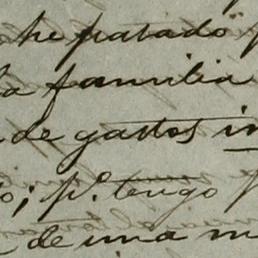 he pasado
la familia
de gastos in
o; p.º tengo p
de una m